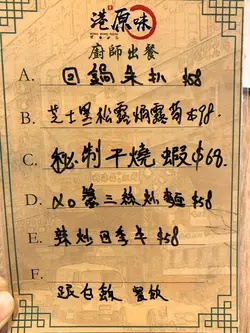 港原味
廚師出餐
A. 回鍋朱扒 $58
B. 芝士黑松露焗露筍 $98.
C. 秘制干燒蝦 $68.
D. XO醬三絲炒麵 $58
E. 辣炒四季 $58
F.
跟白飯 餐飲